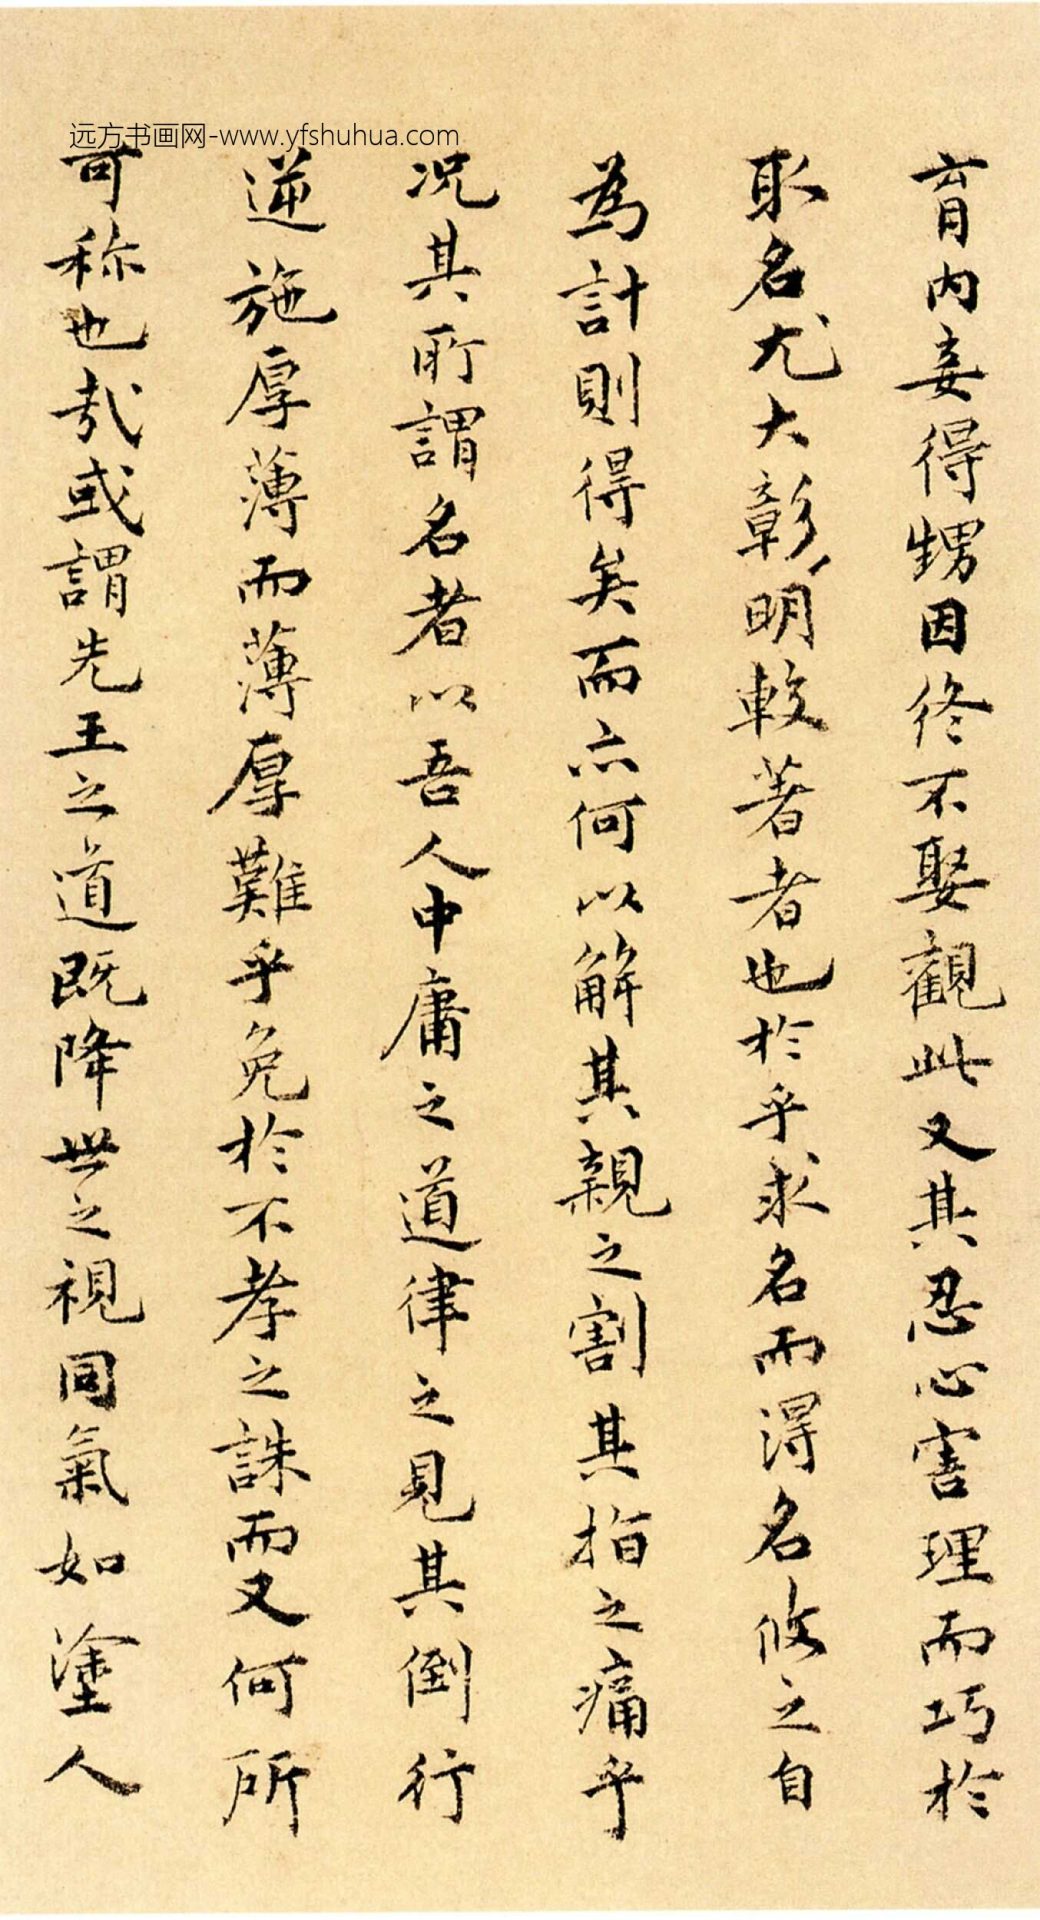 远方书画网-www.yfshuhua.com
育內妾得甥因終不娶觀此又其忍心害理而巧於
取名尤大彰明較著者也於乎求名而得名攸之自
為計則得矣而亦何以解其親之割其指之痛乎
况其所謂名者以吾人中庸之道律之見其倒行
逆施厚薄而薄厚難乎免於不孝之誅而又何所
可称也哉或謂先王之道既降世之視同氣如塗人